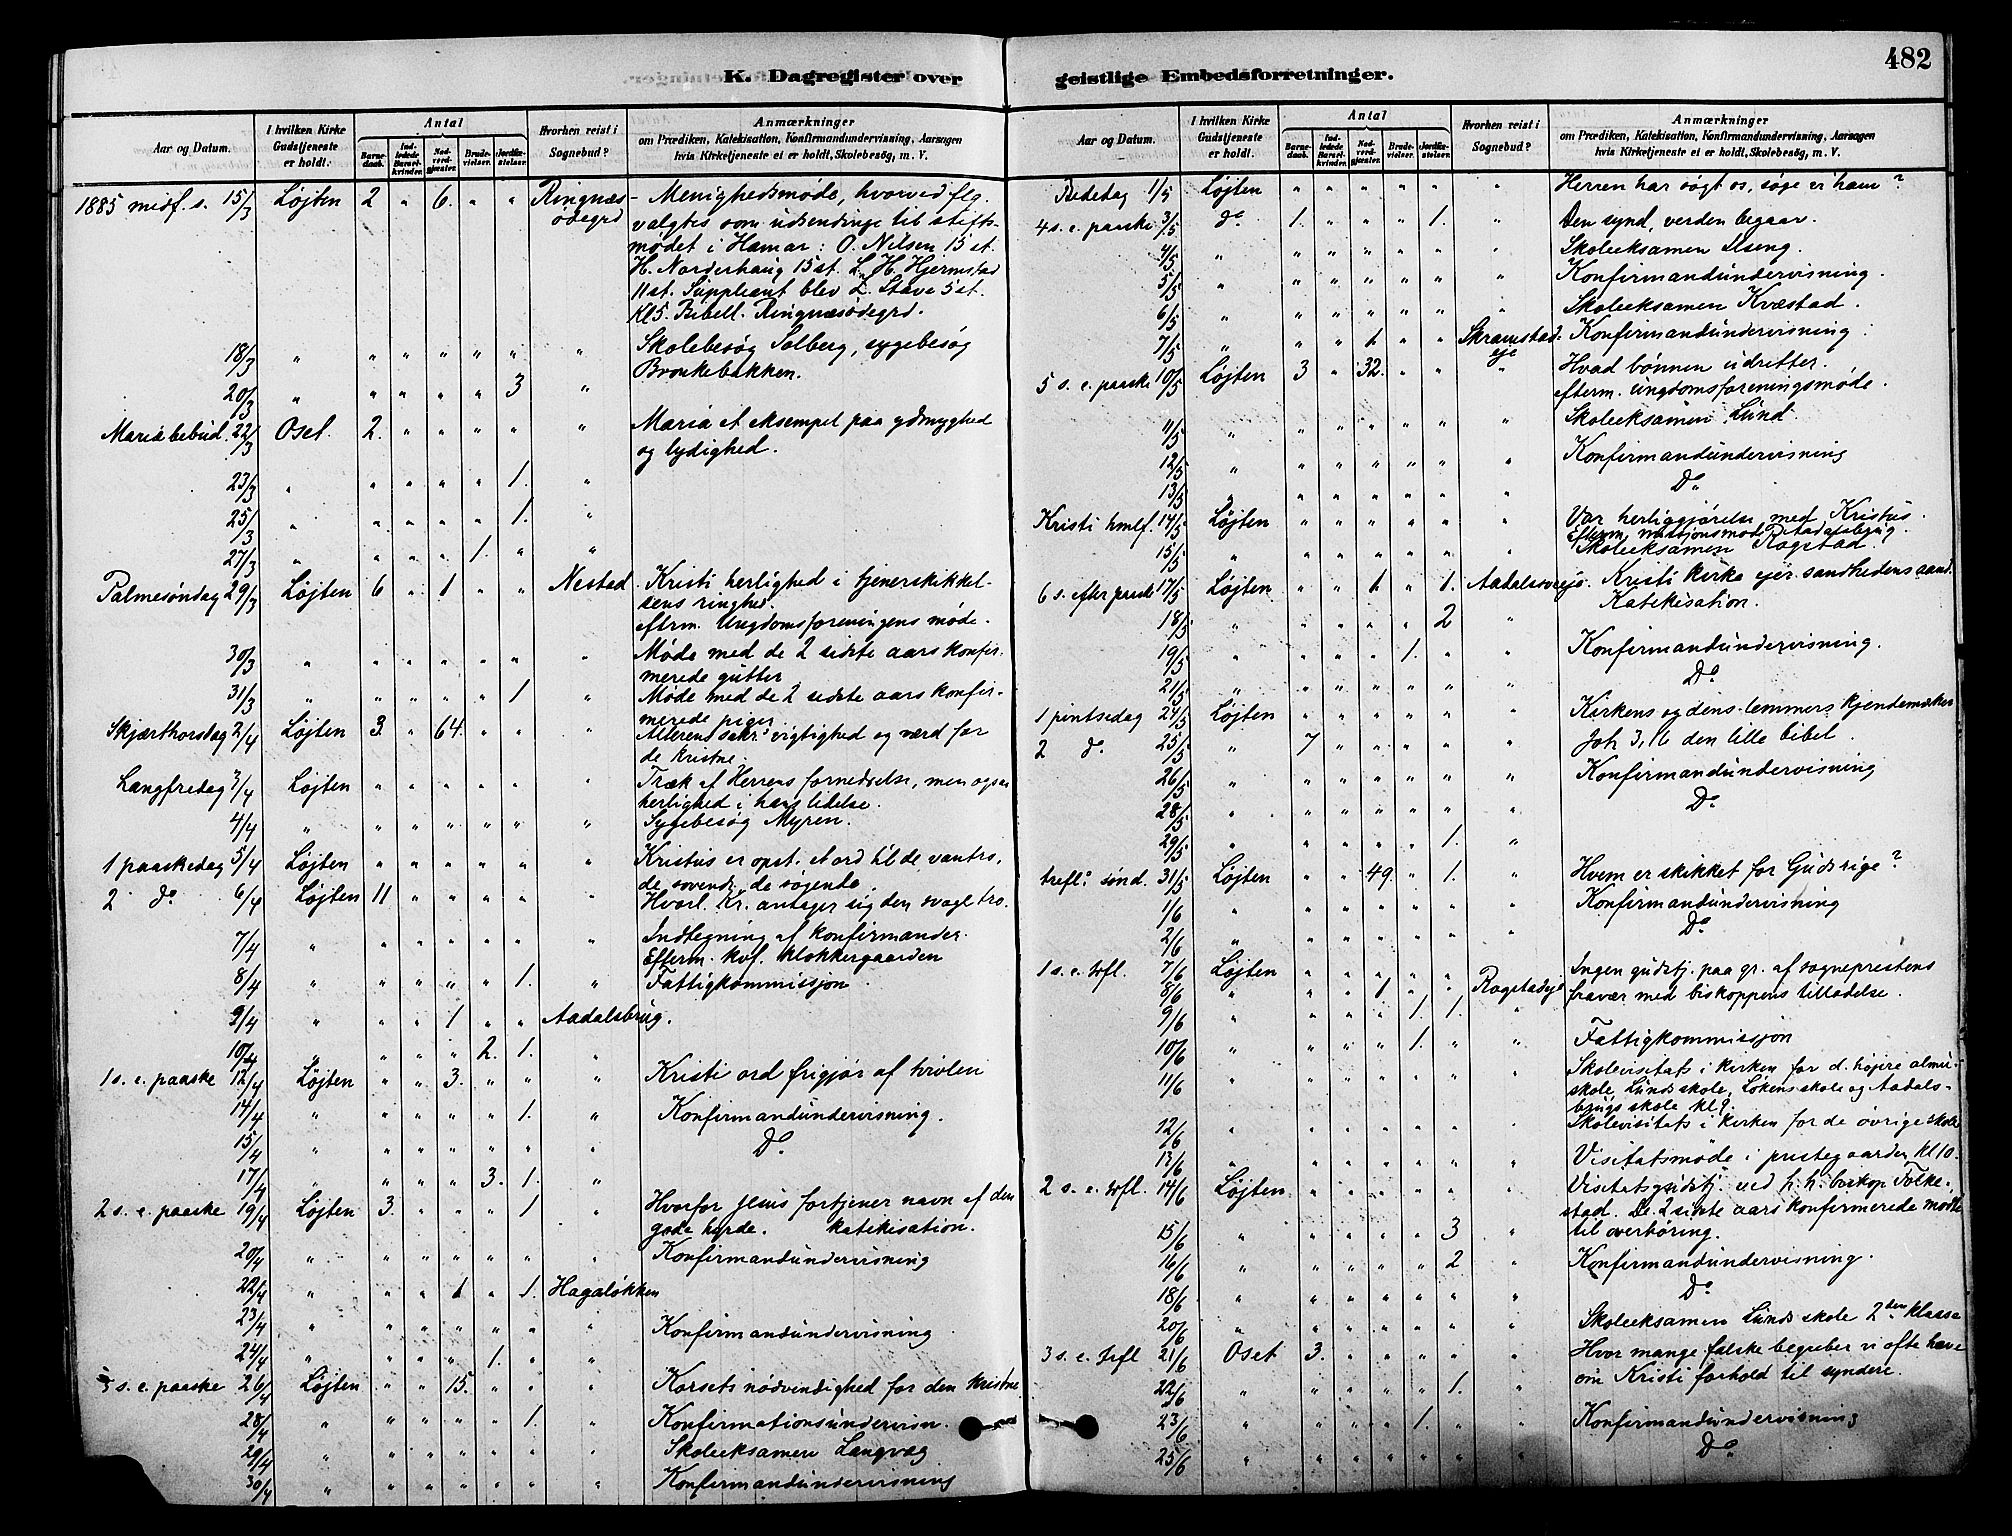 482
K. Dagregister over
Aar og Datum.
I hvilken Kirke Gudstjeneste er holdt.
Antal
Barnedaab.
Indledede Barselkvinder.
Nadverdgjæster.
Brudevielser.
Jordfæstelser.
Hvorhen reist i Sognebud?
Anmærkninger
om Prædiken, Katekisation, Konfirmandundervisning, Aarsagen
hvis Kirketjeneste ei er holdt, Skolebesög, m. V.
1885 midf. s. 15/3 Løjten 2 " 6. " " Ringnæsødegrd Menighedsmøde, hvorved flg.
valgtes som udsendinge til stifts-
mødet i Hamar: O. Nilsen 15 st.
H. Norderhaug 15 st. L. H. Hjermstad
11 st. Suppleant blev L. Stave 5 st.
Kl 5. Bibell. Ringnæsødegrd.
18/3 " " " " " " " Skolebesøg Solberg, sygebesøg
Bronkebakken.
20/3 " " " " " 3 "
Maria bebud. 22/3 Oset. 2. " " " " " Maria et eksempel paa ydmyghed
og lydighed.
23/3 " " " " " 1. "
25/3 " " " " " 1. "
27/3 " " " " 1. " "
Palmesøndag 29/3 Løjten 6 " 1 " " Nestad Kristi herlighed i tjenerskikkel-
sens ringhed.
efterm. Ungdomsforeningens møde.
30/3 " " " " " " " Møde med de 2 sidste aars konfir-
merede gutter
31/3 " " " " " 1 " Møde med de 2 sidste aars konfir-
merede piger
Skjærthorsdag 2/4 Løjten 3. " 64. " " " Alterens sakr. vigtighed og værd for
de kristne.
Langfredag 3/4 Løjten " " " " " " Træk af Herrens fornedrelse, men ogsaa
herlighed i hans lidelse.
4/4 " " " " " " " Sygebesøg Myren.
1 paaskedag 5/4 Løjten " " " " " " Kristus er opst. et ord til de vantro,
de sovende, de søgende.
2 do 6/4 Løjten 11 " " " " " Hvorl. Kr. antager sig den svage tro.
7/4 " " " " " " " Indtegning af konfirmander.
Efterm. kvf. Klokkergaarden
8/4 " " " " " 1. " Fattigkommissjon
9/4 " " " 1 " " Aadalsbrug.
10/4 " " " " 2. 1. "
1 s. e. paaske 12/4 Løjten " " 3. " " " Kristi ord frigjør af tvivlen
14/4 " " " " " 1. " Konfirmandundervisning.
15/4 " " " " " " " Do
17/4 " " " " 3. 1. "
2 s. e. paaske 19/4 Løjten 3. " " " 1 " Hvorfor Jesus fortjener navn af den
gode hyrde. Katekisation.
20/4 " " " " " " " Konfirmandundervisning
22/4 " " " 1 " 1. Hagaløkken
23/4 " " " " " " " Konfirmandundervisning
24/4 " " " " 1. " "
3 s. e. paaske 26/4 Løjten " " 15. " " " Korsets nødvendighed for den kristne
28/4 " " " " " 1. " Konfirmationsundervisn.
29/4 " " " " " " " Skoleeksamen Langvag
30/4 " " " " " " " Konfirmandundervisning
geistlige Embedsforretninger.
Aar og Datum.
I hvilken Kirke Gudstjeneste er holdt.
Antal
Barnedaab.
Indledede Barselkvinder.
Nadverdgjæster.
Brudevielser.
Jordfæstelser.
Hvorhen reist i Sognebud?
Anmærkninger
om Prædiken, Katekisation, Konfirmandundervisning, Aarsagen
hvis Kirketjeneste ei er holdt, Skolebesög, m. V.
Bededag 1/5 Løjten " " " " " " Herren har søgt os, søge vi ham?
4 s. e. paaske 3/5 do 1. " " " 1. " Den synd, verden begaar.
4/5 " " " " " " " Skoleeksamen Ilseng.
5/5 " " " " " " " Konfirmandundervisning.
6/5 " " " " " " " Skoleeksamen Kvæstad.
7/5 " " " 1. " " Skramstadeje Konfirmandundervisning.
5 s. e. paaske 10/5 Løjten 3 " 32. " " " Hvad bønnen udretter.
efterm. Ungdomsforeningsmøde.
11/5 " " " " " " " Skoleeksamen Lund.
12/5 " " " " " " " Konfirmandundervisning
13/5 " " " " " " " Do
Kristi hmlf. 14/5 Løjten " " " " " " Vor herliggjørelse med Kristus.
Efterm. missjonsmøde Aadalsbrug.
15/5 " " " " " " " Skoleeksamen Rogstad.
6 s. efter paaske 17/5 Løjten " " 1. " 1. Aadalsbrugeje. Kristi kirke ejer sandhedens aand.
Katekisation.
18/5 " " " " " 2 "
19/5 " " " " 1. " " Konfirmandundervisning.
21/5 " " " " " " " Do
1 pintsedag 24/5 Løjten " " " " " " Kirkens og dens lemmers kjendemærker
2 do 25/5 " 7 " " " " " Joh 3,16 den lille bibel.
26/5 " " " " " " " Konfirmandundervisning
28/5 " " " " " " " Do
29/5 " " " " " 1. "
trefl. sønd. 31/5 Løjten " " 49. " 1. " Hvem er skikket for Guds rige?
1/6 " " " " " " " Konfirmandundervisning
2/6 " " " " " " " Do
1 s. e. trefl. 7/6 Løjten " " " " " " Ingen gudstj. paa gr. af sogneprestens
8/6 " " " 1 " " Rogstadeje fravær med biskoppens tilladelse.
9/6 " " " " 1. 1. "
10/6 " " " " 1. " " Fattigkommissjon
11/6 " " " " " " " Skolevisitats i kirken for d. højere almue
skole, Lunds skole, Løkens skole og Aadals-
brugs skole kl 9.
12/6 " " " " " " " Skolevisitats i kirken for de øvrige skoler
13/6 " " " " " " " Visitatsmøde i prestegaarden kl 10.
2 s. e. trefl. 14/6 Løjten " " " " " " Visitatsgudstj. ved h. h. biskop Folke-
stad. De 2 sidste aars konfirmerede mødte
15/6 " " " " " 3 " til overhøring.
16/6 " " " " " 2 " Konfirmandundervisning.
18/6 " " " " " " " Do
20/6 " " " " " " " Skoleeksamen Lunds skole 2den klasse
3 s. e. trfl 21/6 Oset 3. " " " " " Hvor mange falske begreber vi ofte have
22/6 " " " " " 1. " om Kristi forhold til syndere.
23/6 " " " " 1. " " Konfirmandundervisning
25/6 " " " " " " " Do